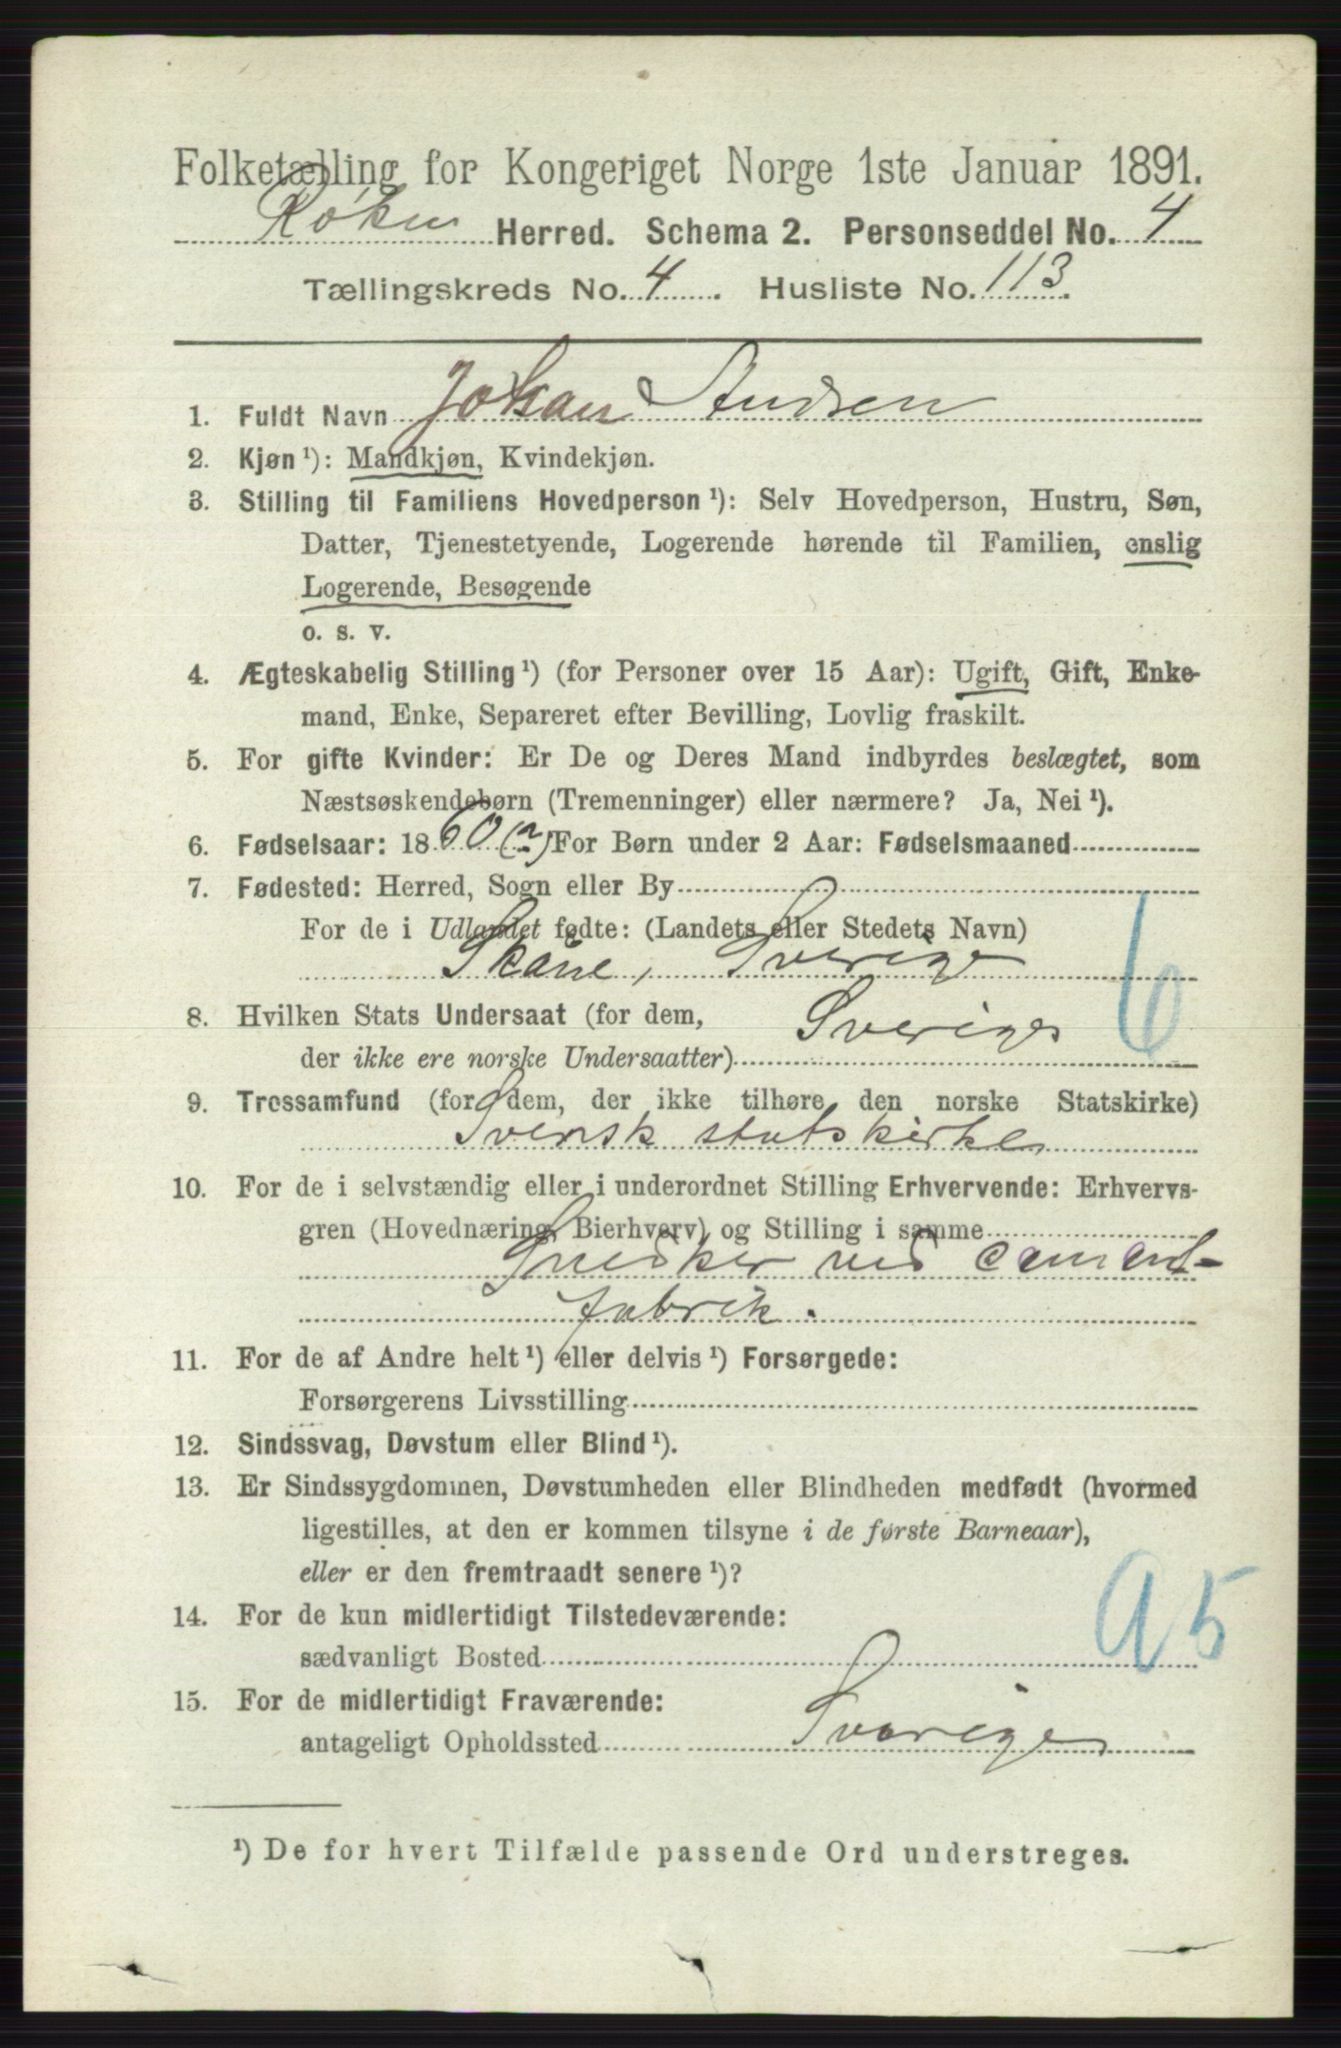 Folketælling for Kongeriget Norge 1ste Januar 1891.
Røken Herred. Schema 2. Personseddel No. 4
Tællingskreds No. 4. Husliste No. 113.
1. Fuldt Navn Johan Andsen
2. Kjøn ¹): Mandkjøn, Kvindekjøn.
3. Stilling til Familiens Hovedperson ¹): Selv Hovedperson, Hustru, Søn,
Datter, Tjenestetyende, Logerende hørende til Familien, enslig
Logerende, Besøgende
o. s. v.
4. Ægteskabelig Stilling ¹) (for Personer over 15 Aar): Ugift, Gift, Enke-
mand, Enke, Separeret efter Bevilling, Lovlig fraskilt.
5. For gifte Kvinder: Er De og Deres Mand indbyrdes beslægtet, som
Næstsøskendebørn (Tremenninger) eller nærmere? Ja, Nei ¹).
6. Fødselsaar: 1860 (?) For Børn under 2 Aar: Fødselsmaaned
7. Fødested: Herred, Sogn eller By
For de i Udlandet fødte: (Landets eller Stedets Navn)
Skåne, Sverige
6
8. Hvilken Stats Undersaat (for dem,
Sverige
der ikke ere norske Undersaatter)
9. Trossamfund (for dem, der ikke tilhøre den norske Statskirke)
Svensk statskirke
10. For de i selvstændig eller i underordnet Stilling Erhvervende: Erhvervs-
gren (Hovednæring, Bierhverv) og Stilling i samme
Snedker ved cement-
fabrik.
11. For de af Andre helt ¹) eller delvis ¹) Forsørgede:
Forsørgerens Livsstilling
12. Sindssvag, Døvstum eller Blind ¹).
13. Er Sindssygdommen, Døvstumheden eller Blindheden medfødt (hvormed
ligestilles, at den er kommen tilsyne i de første Barneaar),
eller er den fremtraadt senere ¹)?
14. For de kun midlertidigt Tilstedeværende:
sædvanligt Bosted
a 5
15. For de midlertidigt Fraværende:
antageligt Opholdssted Sverige
¹) De for hvert Tilfælde passende Ord understreges.